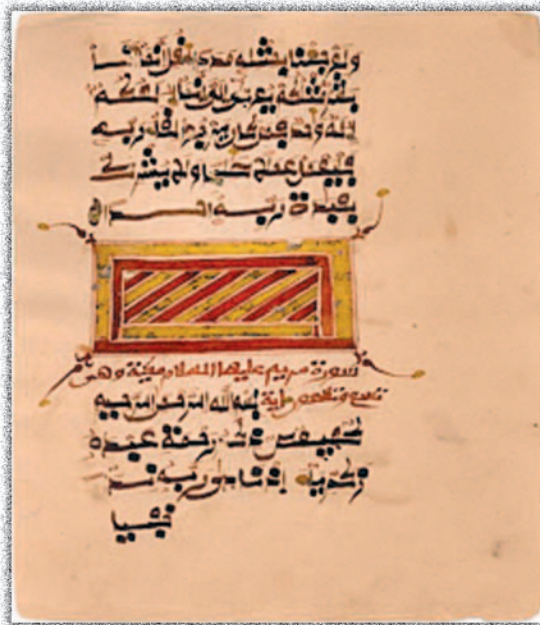 ولو جئنا بمثله مددا قل إنما أنا
بشر مثلكم يوحى إلي أنما إلهكم
إله وحد فمن كان يرجوا لقاء ربه
فليعمل عملا صلحا ولا يشرك
بعبدة ربه أحدا
سورة مريم عليها السلام مكية وهي
تسع وتسعون ءاية بسم الله الرحمن الرحيم
كهيعص ذكر رحمة عبده
زكريا إذ نادى ربه نداء
خفيا